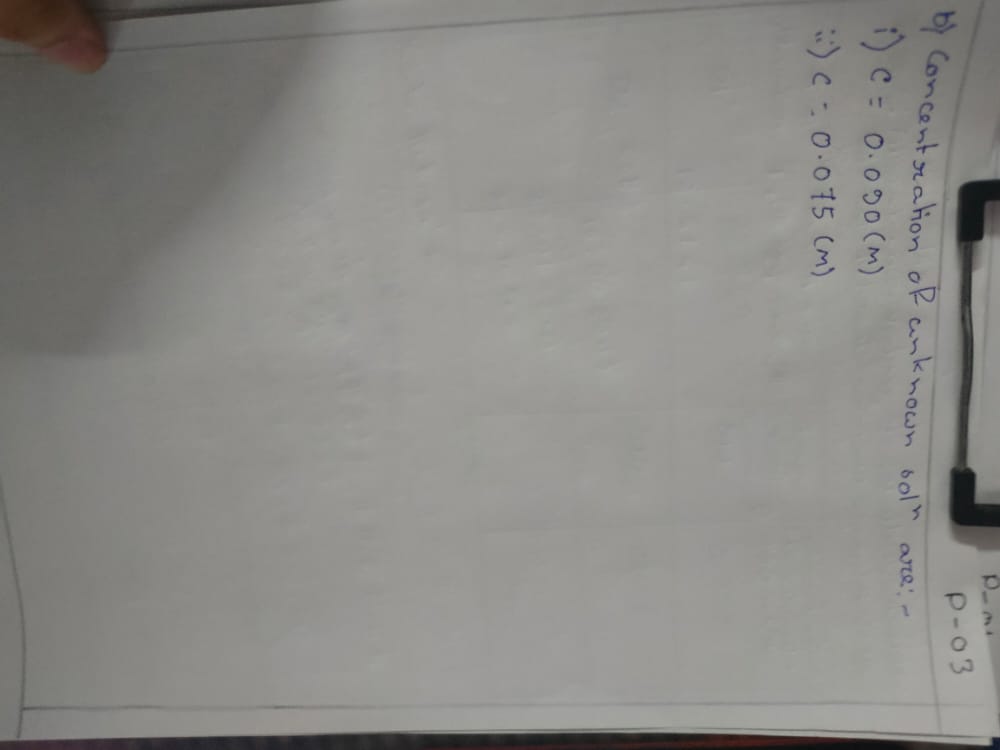 P-03
b) Concentration of unknown solⁿ are:-
i) C = 0.090 (M)
ii) C = 0.075 (M)